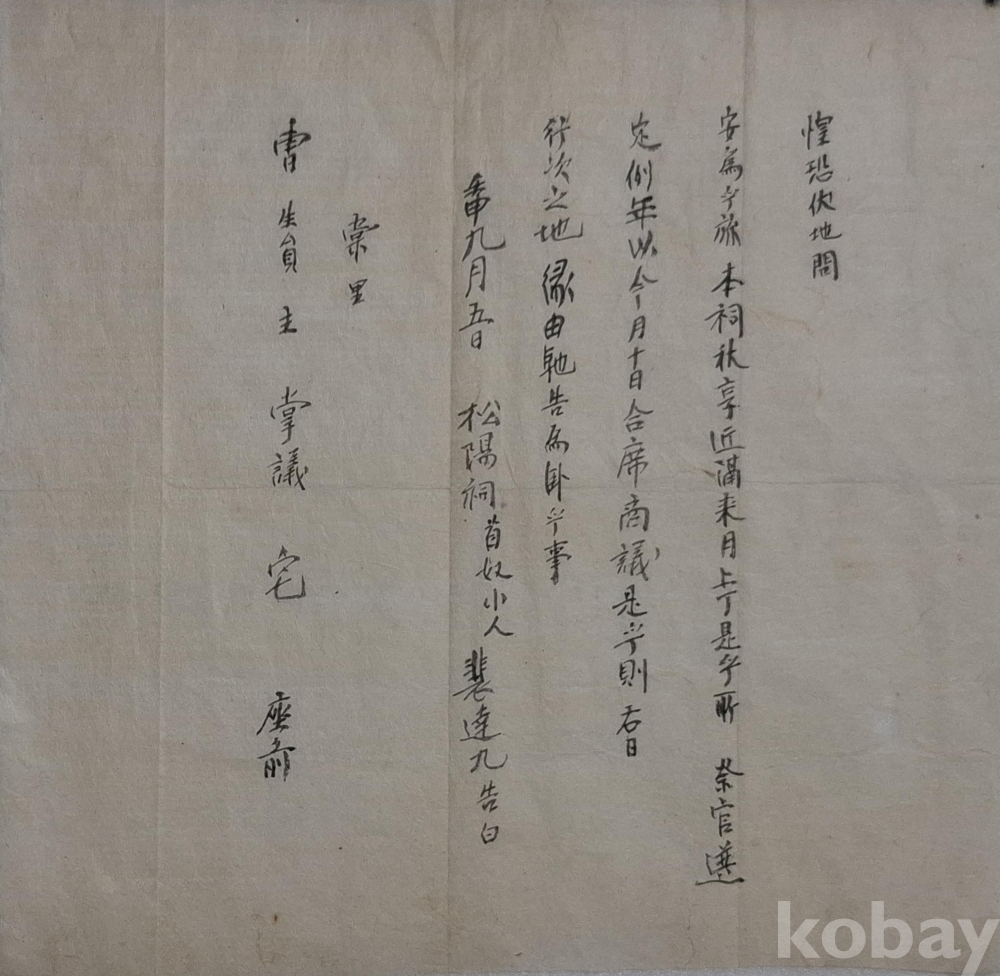 惶恐伏地問
安爲乎旀 本祠秋享近滿来月上丁是乎所 祭官遵
定例年以今月十日合席商議是乎則 右日
行次之地 緣由馳告爲卧乎事
申九月五日 松陽祠首奴小人 裴達九告白
棠里
曺生員主 掌議 宅 座前
kobay